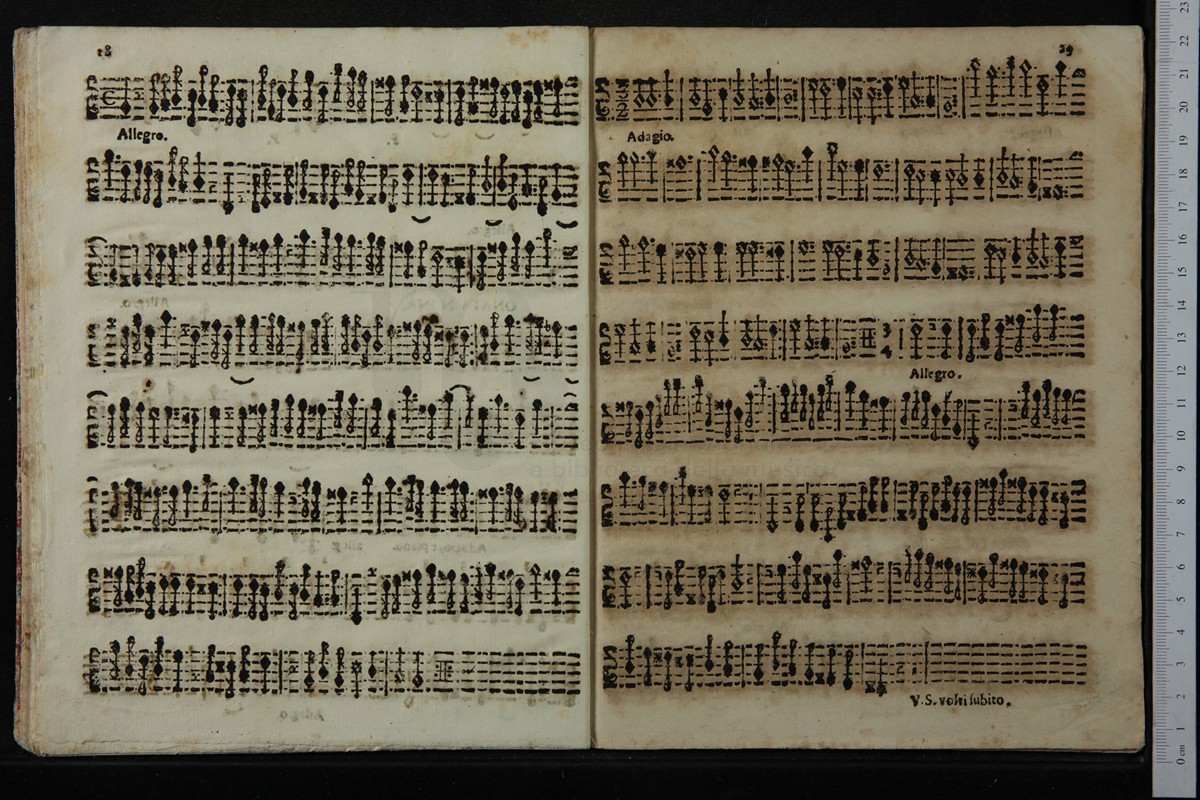 18
Allegro.
19
Adagio.
3
4
Allegro.
V. S. volti subito.
23
22
21
20
19
18
17
16
15
14
13
12
11
10
9
8
7
6
5
4
3
2
1
0 cm